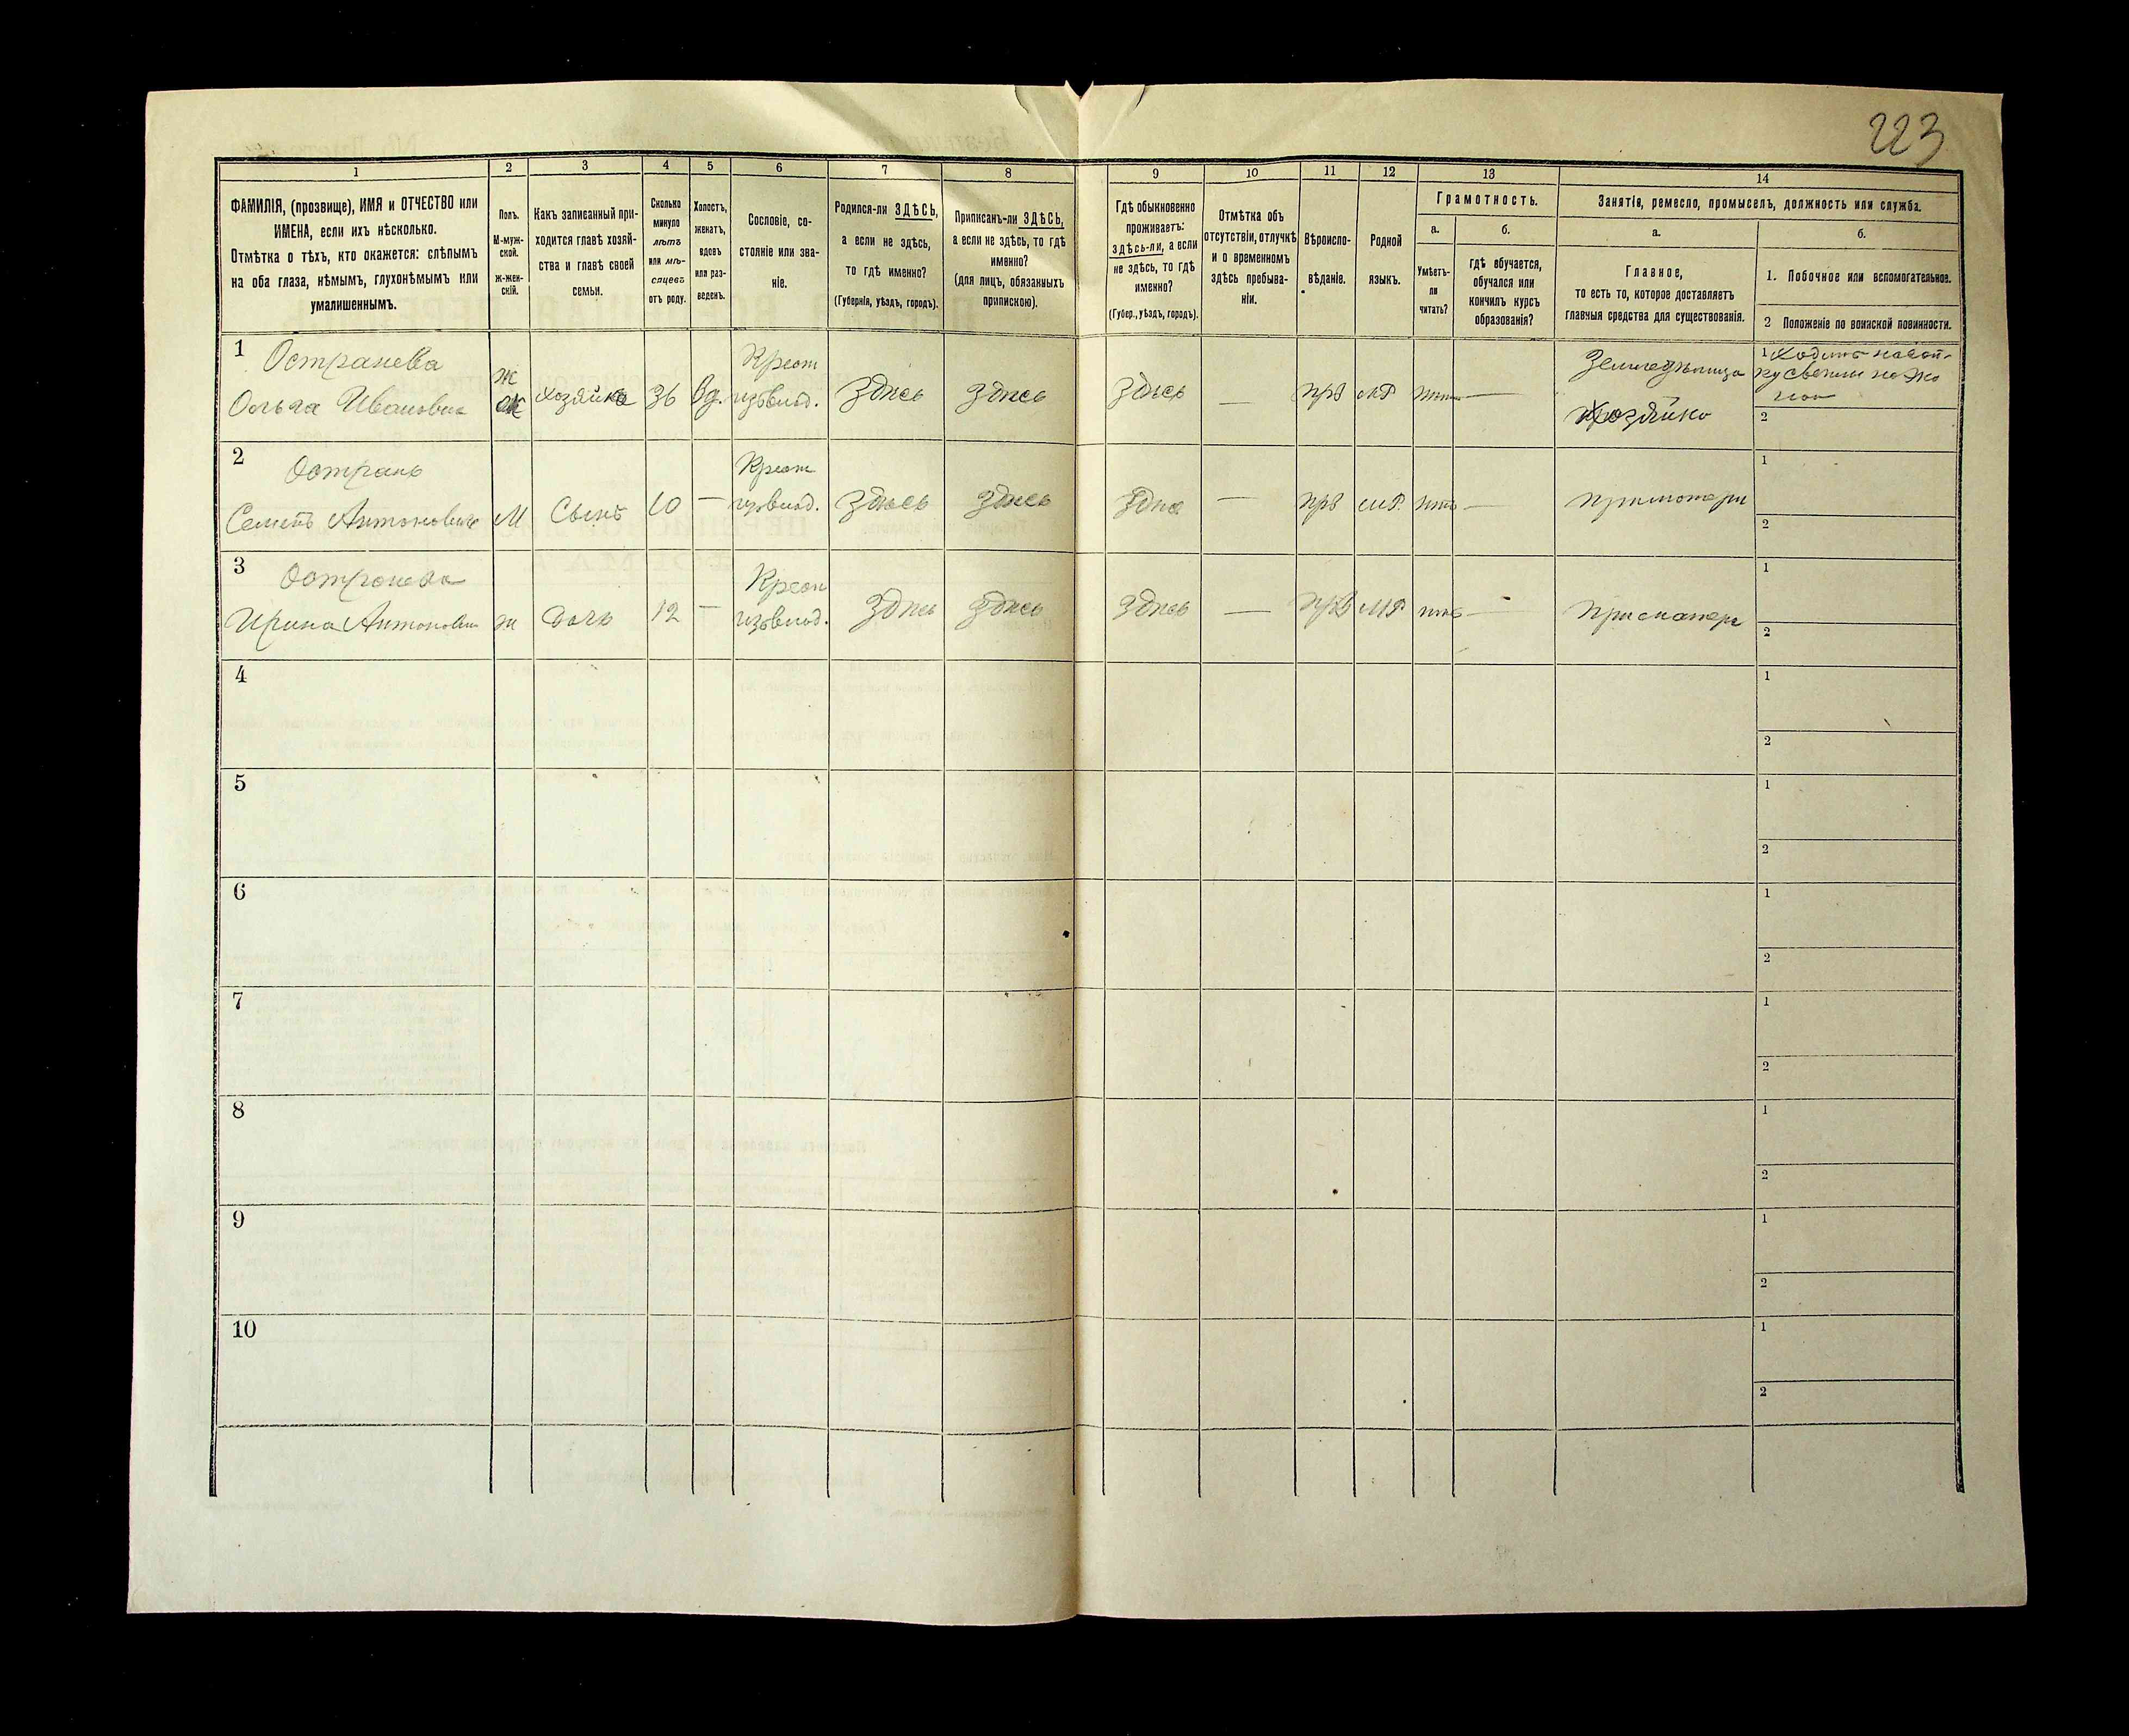 223
1
2
3
4
5
6
7
8
9
10
11
12
13
14
ФАМИЛІЯ, (прозвище), ИМЯ и ОТЧЕСТВО или
ИМЕНА, если ихъ нѣсколько.
Отмѣтка о тѣхъ, кто окажется: слѣпымъ
на оба глаза, нѣмымъ, глухонѣмымъ или
умалишеннымъ.
Полъ.
М-муж-
ской.
Ж-жен-
скій.
Какъ записанный при-
ходится главѣ хозяй-
ства и главѣ своей
семьи.
Сколько
минуло
лѣтъ
или мѣ-
сяцевъ
отъ роду.
Холостъ,
женатъ,
вдовъ
или раз-
веденъ.
Сословіе, со-
стояніе или зва-
ніе.
Родился-ли ЗДѢСЬ,
а если не здѣсь,
то гдѣ именно?
(Губернія, уѣздъ, городъ).
Приписанъ-ли ЗДѢСЬ,
а если не здѣсь, то гдѣ
именно?
(для лицъ, обязанныхъ
припискою).
Гдѣ обыкновенно
проживаетъ:
здѣсь-ли, а если
не здѣсь, то гдѣ
именно?
(Губер., уѣздъ, городъ).
Отмѣтка объ
отсутствіи, отлучкѣ
и о временномъ
здѣсь пребыва-
ніи.
Вѣроиспо-
вѣданіе.
Родной
языкъ.
Грамотность.
а.
Умѣетъ-
ли
читать?
б.
гдѣ обучается,
обучался или
кончилъ курсъ
образованія?
Занятія, ремесло, промыселъ, должность или служба.
а.
Главное,
то есть то, которое доставляетъ
главныя средства для существованія.
б.
1. Побочное или вспомогательное.
2 Положеніе по воинской повинности.
1
Остранева
Ольга Ивановна
Ж
Хозяйка
36
Вд.
Крест
изъвлад.
Здѣсь
Здѣсь
Здѣсь
—
прв
МР
—
Хозяйка
1 Ходитъ
2
2
Остpань
Семенъ Антоновичъ
М
Сынъ
10
—
Крест
изъвлад.
Здѣсь
Здѣсь
—
прв
МР.
нѣтъ
—
При матери
1
2
3
Остранева
Ирина Антоновн
ж
дочь
12
—
Крест
изъвлад.
Здѣсь
Здѣсь
Здѣсь
—
прв
МР
нѣтъ
—
При матери
1
2
4
1
2
5
1
2
6
1
2
7
1
2
8
1
2
9
1
2
10
1
2